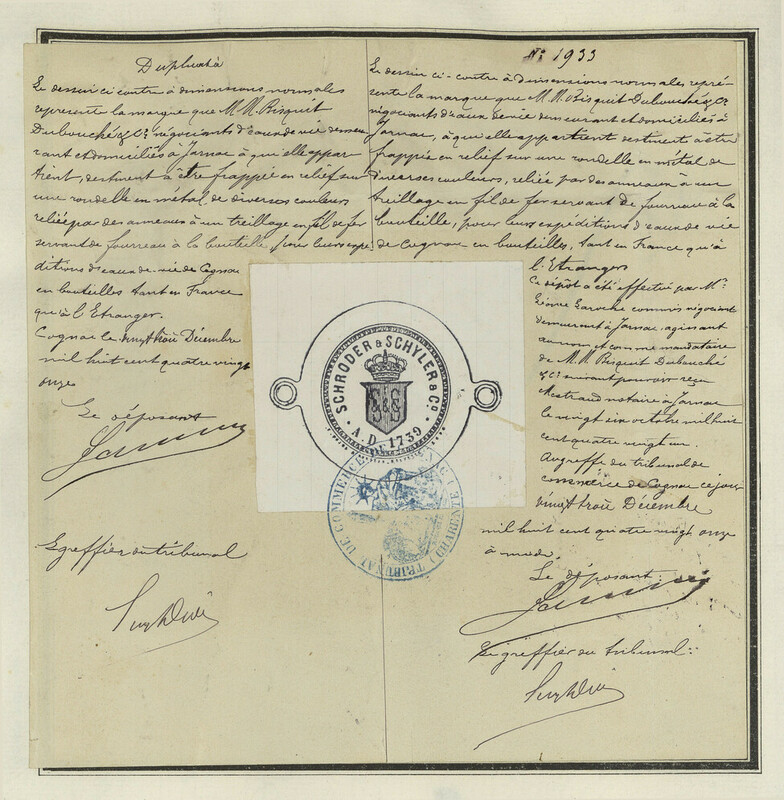 Duplicata
Le dessin ci contre à dimensions normales
représente la marque que M.M. Bisquit
Dubouché & Cie négociants d'eaux de vie demeu
rant et domiciliés à Jarnac à qui elle appar
tient, destinent à être frappée en relief sur
une rondelle en métal de diverses couleurs
reliée par des anneaux à un treillage en fil de fer
servant de fourreau à la bouteille pour leurs expé
ditions d'eaux-de-vie de Cognac
en bouteilles tant en France
qu'à l'Etranger.
Cognac le vingt trois Décembre
mil huit cent quatre vingt
onze
Le déposant
Le greffier du tribunal
No 1933
Le dessin ci-contre à dimensions normales repré-
sente la marque que M.M. Bisquit Dubouché & Cie
négociants d'eaux de vie demeurant et domiciliés à
Jarnac, à qui elle appartient destinent à être
frappée en relief sur une rondelle en métal de
diverses couleurs, reliée par des anneaux à un
treillage en fil de fer servant de fourreau à la
bouteille, pour leurs expéditions d'eaux de vie
de Cognac en bouteilles, tant en France qu'à
l'Etranger
Ce dépôt a été effectué par Mr
Laroche commis négociant
demeurant à Jarnac, agissant
au nom et comme mandataire
de M.M. Bisquit Dubouché
& Cie suivant pouvoir reçu
Mestraud notaire à Jarnac
le vingt six octobre mil huit
cent quatre vingt un.
Au greffe du tribunal de
commerce de Cognac ce jour
vingt trois Décembre
mil huit cent quatre vingt onze
à midi.
Le déposant:
Le greffier du tribunal:
SCHRÖDER & SCHYLER & CO.
S&S
A.D. 1739
TRIBUNAL DE COMMERCE
(CHARENTE)